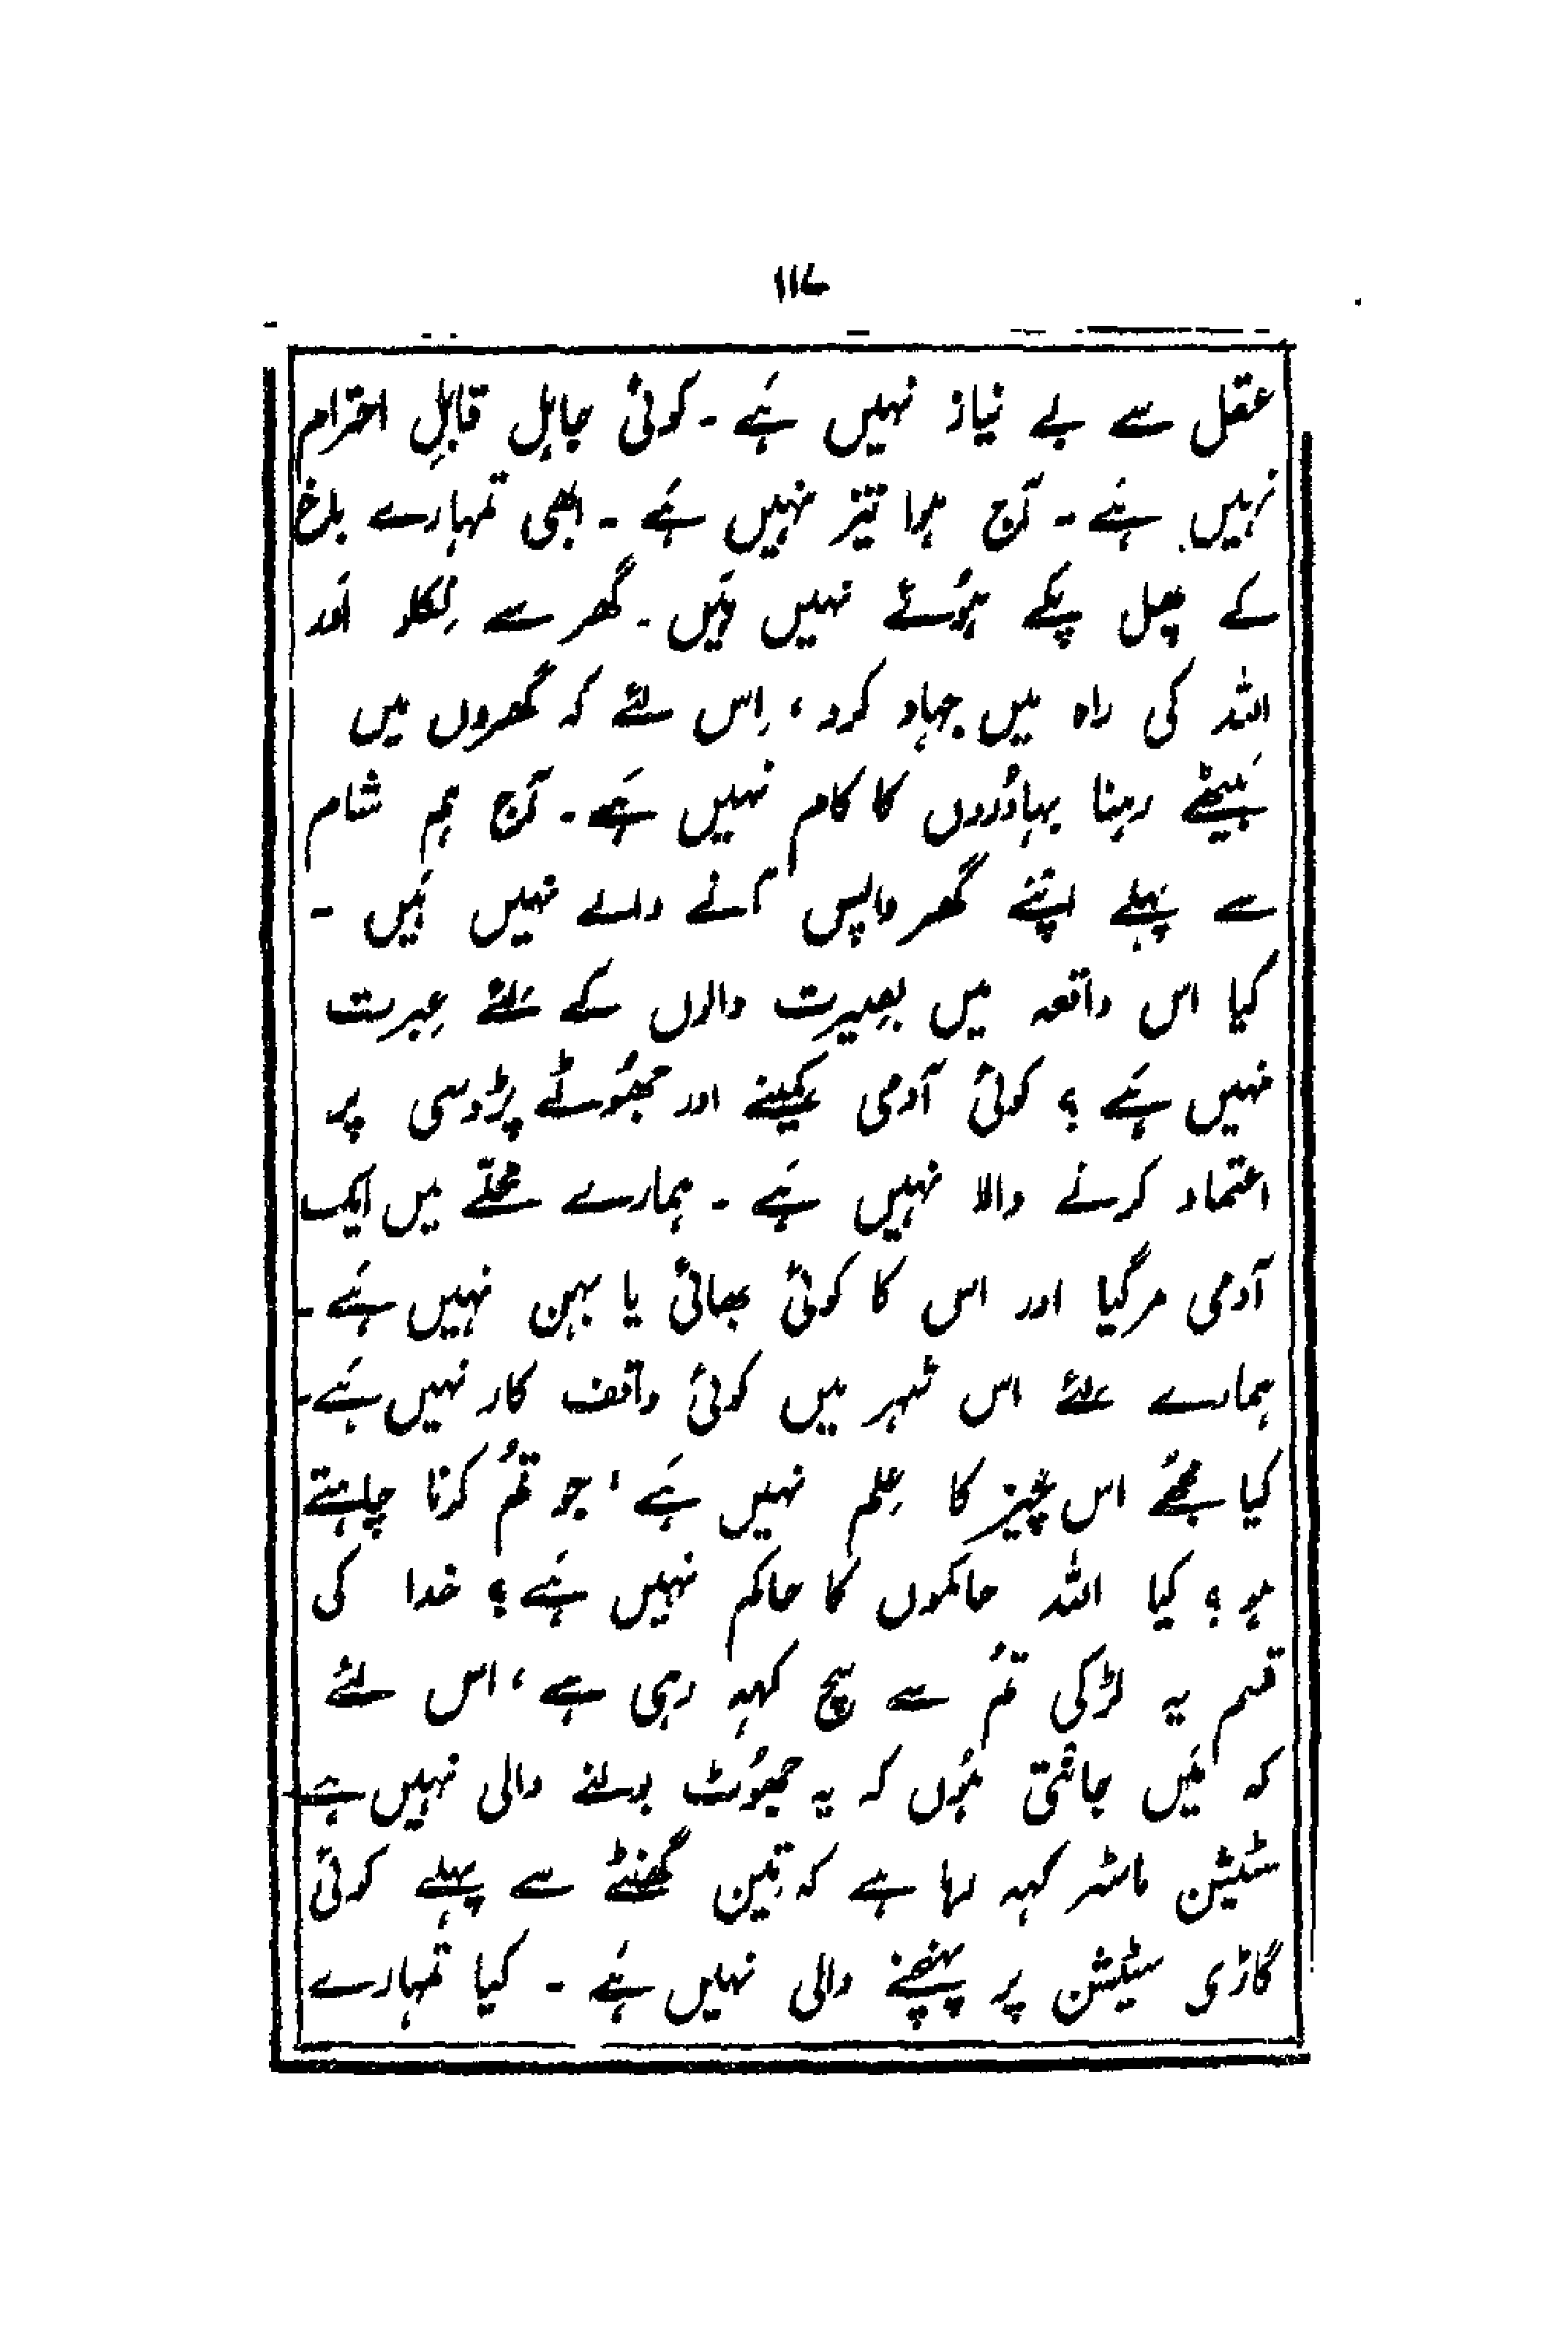 ۱۱۷
عقل سے بے نیاز نہیں ہَے ۔ کوئی جاہِل قابلِ احترام
نہیں ہَے ۔ آج ہوا تیز نہیں ہَے ۔ ابھی تمہارے باغ
کے پھل پکے ہُوئے نہیں ہَیں ۔ گھر سے نِکلو اَور
اللہ کی راہ میں جہاد کرو ، اِس لئے کہ گھروں میں
بَیٹھے رہنا بہادُروں کا کام نہیں ہَے ۔ آج ہم شام
سے پہلے اپنے گھر واپس آنے والے نہیں ہَیں ۔
کیا اس واقعہ میں بصیرت والوں کے لئے عِبرت
نہیں ہَے ؟ کوئی آدمی کمینے اور جھُوٹے پڑوسی پر
اعتماد کرنے والا نہیں ہَے ۔ ہمارے محلّے میں ایک
آدمی مر گیا اور اس کا کوئی بھائی یا بہن نہیں ہَے ۔
ہمارے لئے اس شہر میں کوئی واقف کار نہیں ہَے ۔
کیا مجھے اس چیز کا عِلم نہیں ہَے ، جو تُم کرنا چاہتے
ہو ؟ کیا اللہ حاکموں کا حاکم نہیں ہَے ؟ خدا کی
قسم یہ لڑکی تُم سے سچ کہہ رہی ہے ، اس لئے
کہ مَیں جانتی ہُوں کہ یہ جھُوٹ بولنے والی نہیں ہے
سٹیشن ماسٹر کہہ رہا ہے کہ تین گھنٹے سے پہلے کوئی
گاڑی سٹیشن پر پہنچنے والی نہیں ہَے ۔ کیا تمہارے